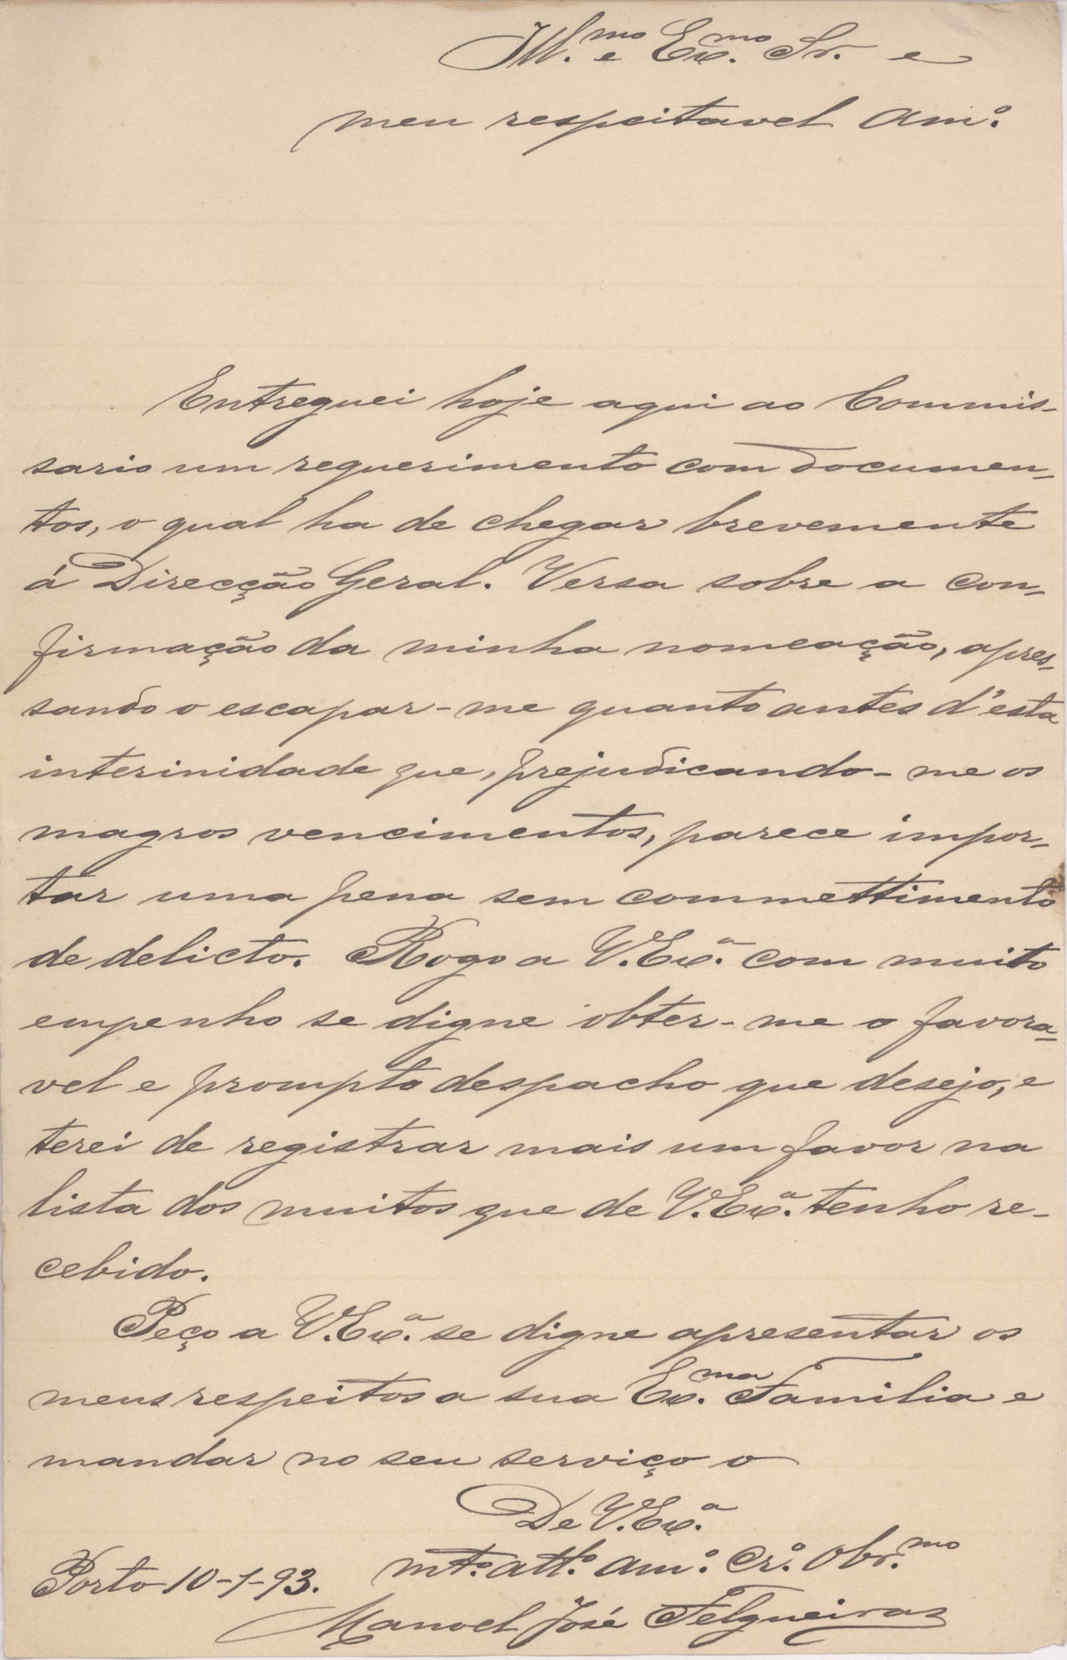 Ill.mo e Ex.mo Sr. e
meu respeitavel Am.o
Entreguei hoje aqui ao Commis-
sario um requerimento com documen-
tos, o qual ha de chegar brevemente
á Direcção Geral. Versa sobre a con-
firmação da minha nomeação, apres-
sando o escapar-me quanto antes d'esta
interinidade que, prejudicando-me os
magros vencimentos, parece impor-
tar uma pena sem commettimento
de delicto. Rogo a V. Ex.a com muito
empenho se digne obter-me o favora-
vel e prompto despacho que desejo, e
terei de registrar mais um favor na
lista dos muitos que de V. Ex.a tenho re-
cebido.
Peço a V. Ex.a se digne apresentar os
meus respeitos a sua Ex.ma Familia e
mandar no seu serviço o
De V. Ex.a
mt.o att.o am.o cr.o obr.mo
Porto 10-1-93.
Manoel José Felgueiras